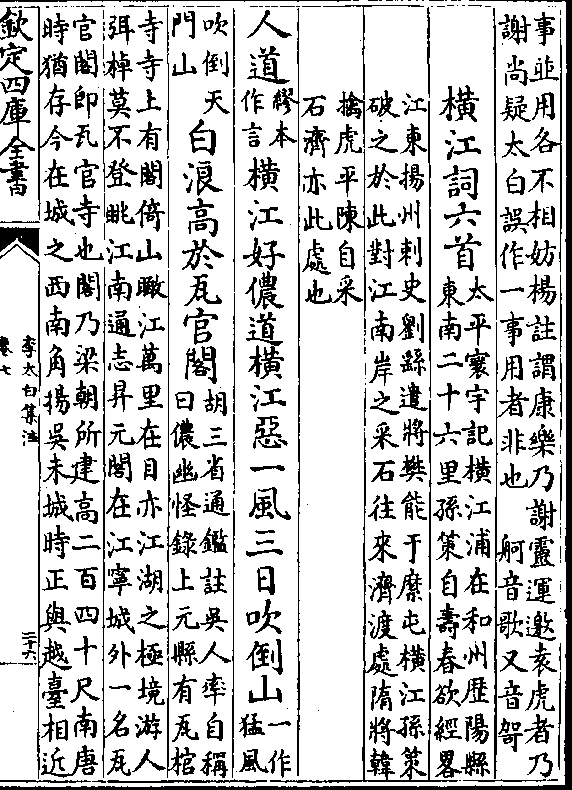 事並用各不相妨楊註謂康樂乃謝靈運邀袁虎者乃
謝尚疑太白誤作一事用者非也　舸音歌又音哿
橫江詞六首
太平寰宇記橫江浦在和州歴陽縣
東南二十六里孫策自壽春欲經畧
江東揚州刺史劉繇遣將樊能于糜屯橫江孫策
破之於此對江南岸之采石往來濟渡處隋將韓
擒虎平陳自采
石濟亦此處也
人道
繆本
作言
橫江好儂道橫江惡一風三日吹倒山
一作
猛風
吹倒天
門山
白浪高於瓦官閣
胡三省通鑑註吳人率自稱
曰儂幽怪錄上元縣有瓦棺
寺寺上有閣倚山瞰江萬里在目亦江湖之極境游人
弭棹莫不登眺江南通志昇元閣在江寧城外一名瓦
官閣即瓦官寺也閣乃梁朝所建高二百四十尺南唐
時猶存今在城之西南角揚吳未城時正與越臺相近
欽定四庫全書
李太白集注
卷七
二十六